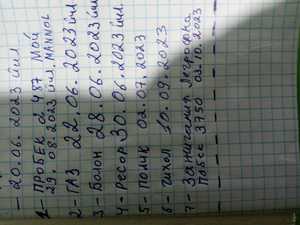 — 20.06.2023 йил
1- ПРОБЕК 2487 МОЙ
29.08.2023 йил. MANNOL
2- ГАЗ 22.06.2023 йил
3- Болон 28.06.2023 йил
4- Ресор 30.06.2023 йил
5- ПОЛИК 02.07.2023
6- чихол 10.09.2023
7- Зажигания
Пабек 3750 02.10.2023